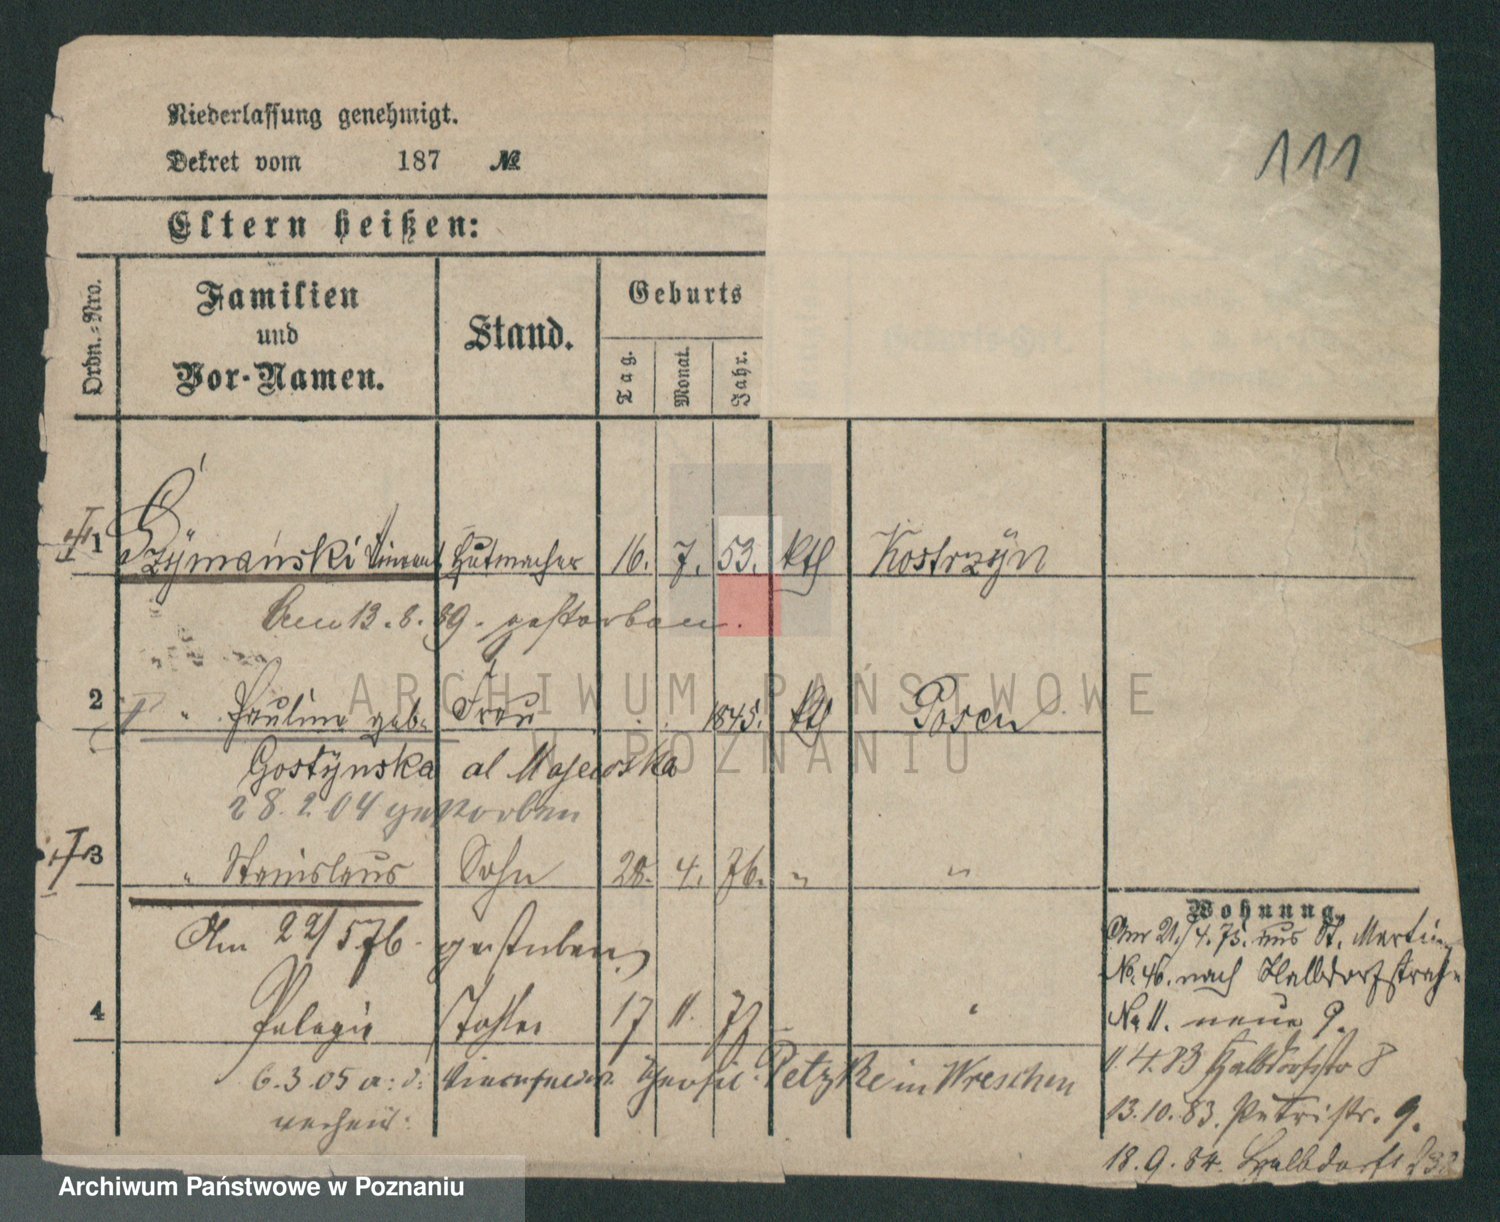 Niederlassung genehmigt.
111
Dekret vom 187 №
Eltern heißen:
Ordn.-Nro.
Familien
und
Vor-Namen.
Stand.
Geburts
Tag.
Monat.
Jahr.
1 Szymański Vincent Hutmacher 16. 7. 53. ktl Kostrzyn
Am 13.8.89. gestorben.
2 " Pauline geb. Frau 1845. ktl Posen
Gostynska al Majewska
28.2.04 gestorben
3 " Stanislaus Sohn 28. 4. 76. " "
Am 22/5 76. gestorben
4 Pelagie Tochter 17 11. 77 "
6.3.05 a: d: Theofil Petzke in Wreschen
verheir:
Wohnung.
Am 21./4.75. aus St. Martin
No. 46. nach Halbdorfstraße
No 11. neue 9.
11.4.83 Halbdorfstr 8
13.10.83. Petristr. 9.
18.9.84. Halbdorfst
ARCHIWUM PAŃSTWOWE
W POZNANIU
Archiwum Państwowe w Poznaniu